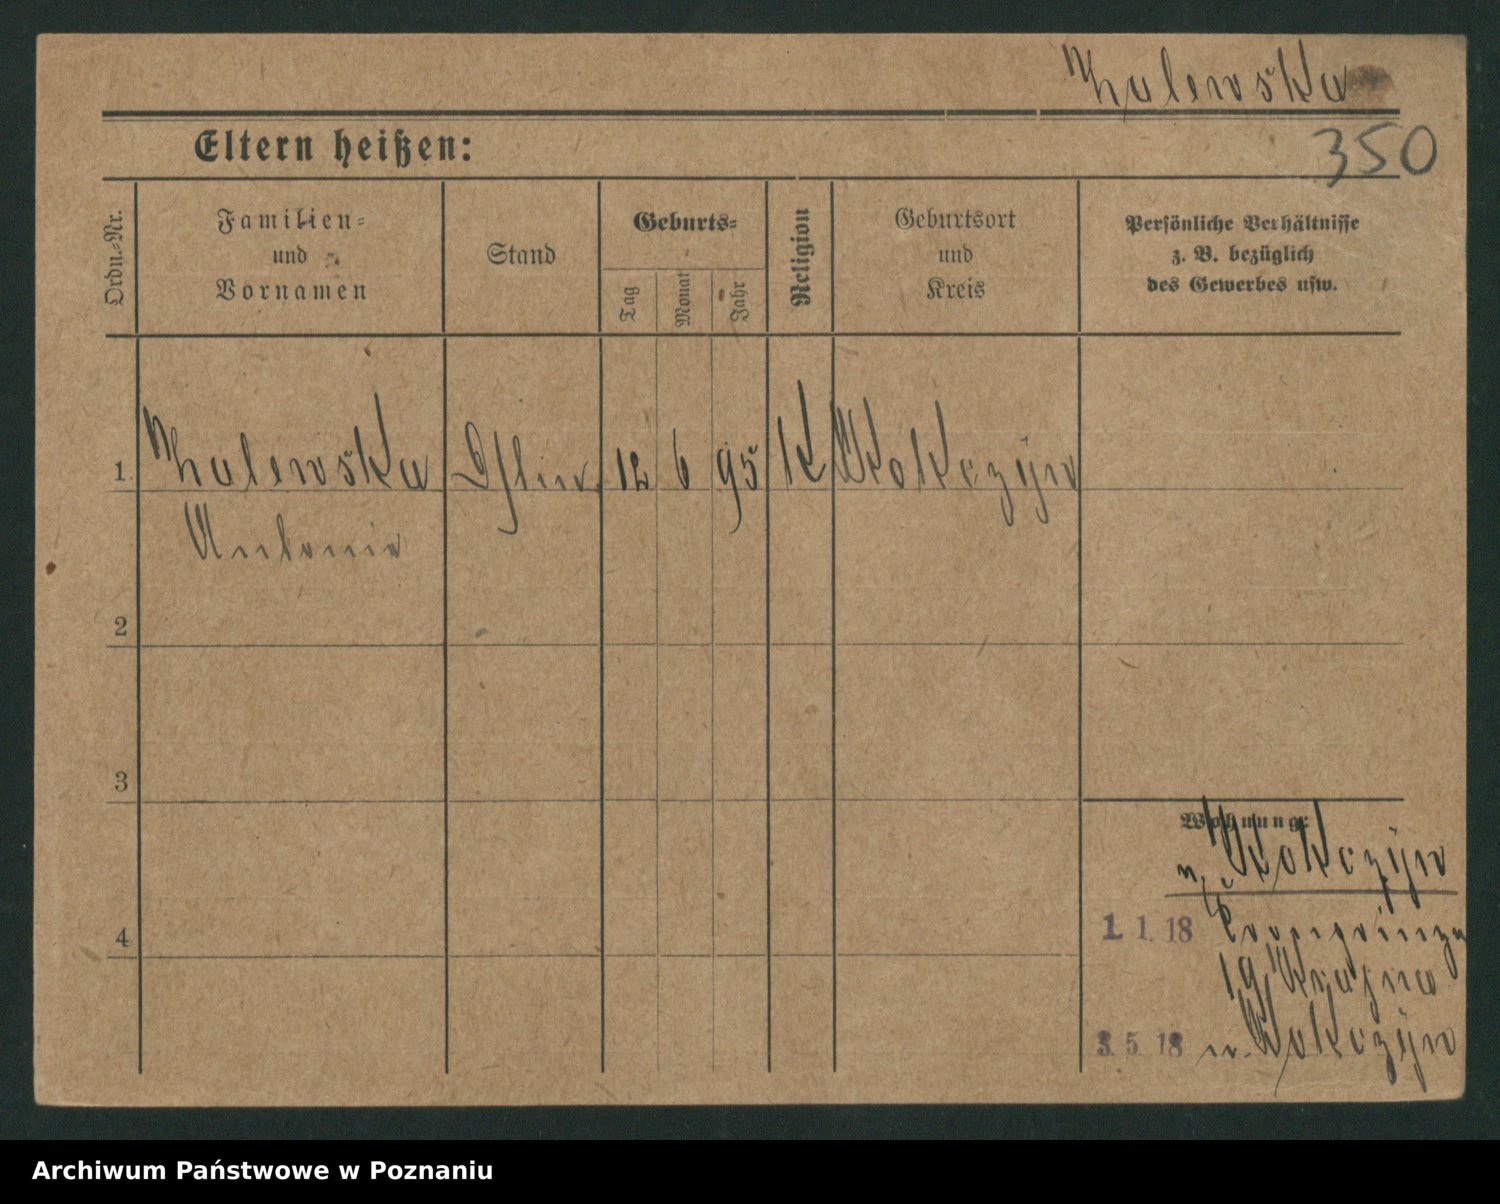 Zalewska
350
Eltern heißen:
Ordn.-Nr.
Familien-
und
Vornamen
Stand
Geburts-
Tag
Monat
Jahr
Religion
Geburtsort
und
Kreis
Persönliche Verhältnisse
z. B. bezüglich
des Gewerbes usw.
1. Zalewska 12 6 95 K Wolkczyn
Antonie
2
3
Wohnung:
n. Wolkczyn
4
1. 1. 18
19
3. 5. 18 n.
Archiwum Państwowe w Poznaniu